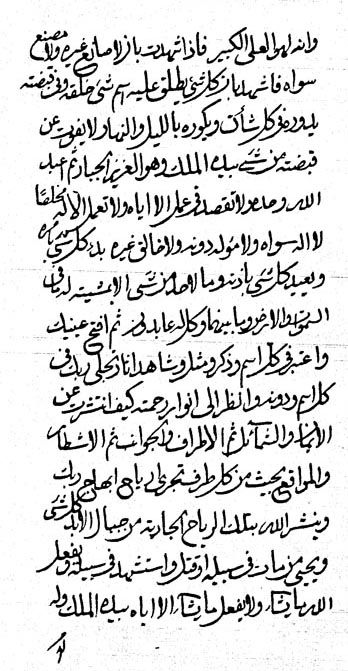 وانه لهو العلي الكبير فاذا شهدت بان لا صانع غيره ولا مصنع
سواه فاشهد بان كلشئ يطلق عليه اسم شئ خلقه وفي قبضته
يدوره في كل شأن ويكوره بالليل والنهار ولا يفوت عن
قبضته من شئ بيده الملك وهو العزيز الجبار ثم اعبد
الله وحده ولا تقصد في عمل الا اياه ولا تعمل الا له مخلصا
لا اله سواه ولا مؤله دونه ولا خالق غيره بدء كل شئ بامره
ويعيد كل شئ باذنه وما لاحد من شئ الا بمشيته له ما في
السموات والارض وما بينهما وكل له عابدون ثم افتح عينيك
واعتبر في كل اسم وذكر ومثل وشاهد انما تجلى ربك في
كل اسم ودونه وانظر الى انوار رحمته كيف انتشرت عن
الايمان والشمائل ثم الاطراف والجوانب ثم الاشطار
والمواقع بحيث من كل طرف تجري ارياح ابهاج ربك
وينشر الله بتلك الرياح الجارية من جبال الابد كلشئ
ويحيى من مات في سبيله او قتل واستشهد في سبيله ويفعل
الله ما يشاء ولا يفعل ما يشاء الا اياه بيده الملك وله